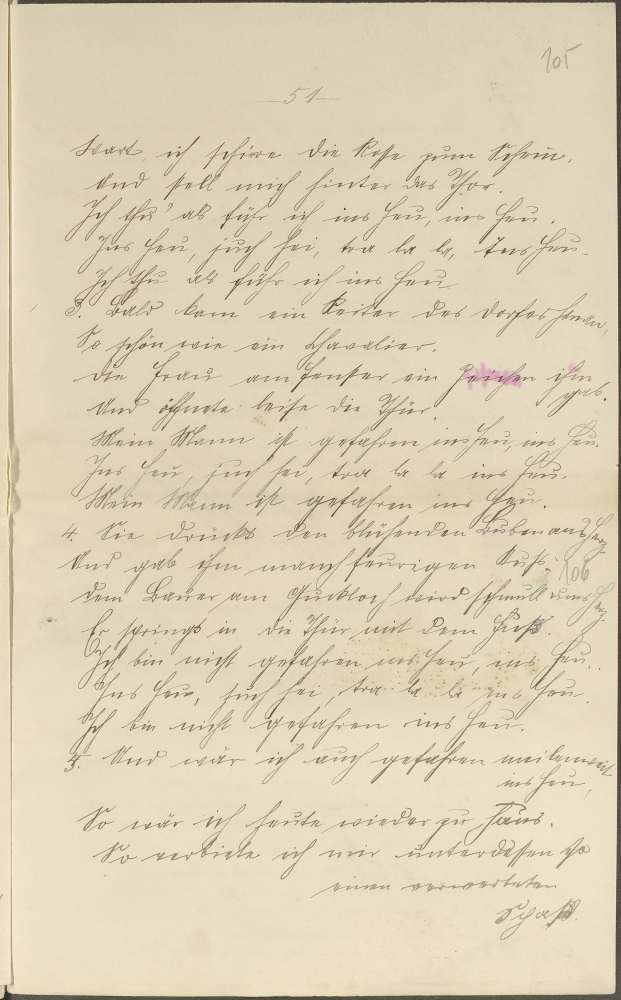 105
— 51 —
Wart, ich schirre die Rosse zum Schein,
Und stell mich hinter das Thor.
Ich thu' als führ ich ins Heu, ins Heu.
Ins Heu, juch hei, tra la la, Ins Heu.
Ich thu als führ ich ins Heu
3. Bald kam ein Reiter des Dorfes
So schön wie ein Chavalier.
Die Frau am Fenster ein Zeichen ihm
gab.
Und öffnete leise die Thür.
Mein Mann ist gefahren ins Heu, ins Heu.
Ins Heu, juch hei, tra la la ins Heu.
Mein Mann ist gefahren ins Heu.
4. Sie drückt den blühenden Buben ans Herz
Und gab ihm manch feurigen Kuß.
106
Dem Bauer am Guckloch wird schwull ums Herz.
Er springt in die Thür mit dem Fuß.
Ich bin nicht gefahren ins Heu, ins Heu.
Ins Heu, juch hei, tra la la ins Heu.
Ich bin nicht gefahren ins Heu.
5. Und wär ich auch gefahren meilenweit
ins Heu,
So wär ich heute wieder zu Haus.
So verbiete ich mir unterdessen so
einen